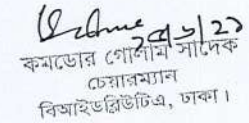 ২৫/৬/২১
কমডোর গোলাম সাদেক
চেয়ারম্যান
বিআইডব্লিউটিএ, ঢাকা।